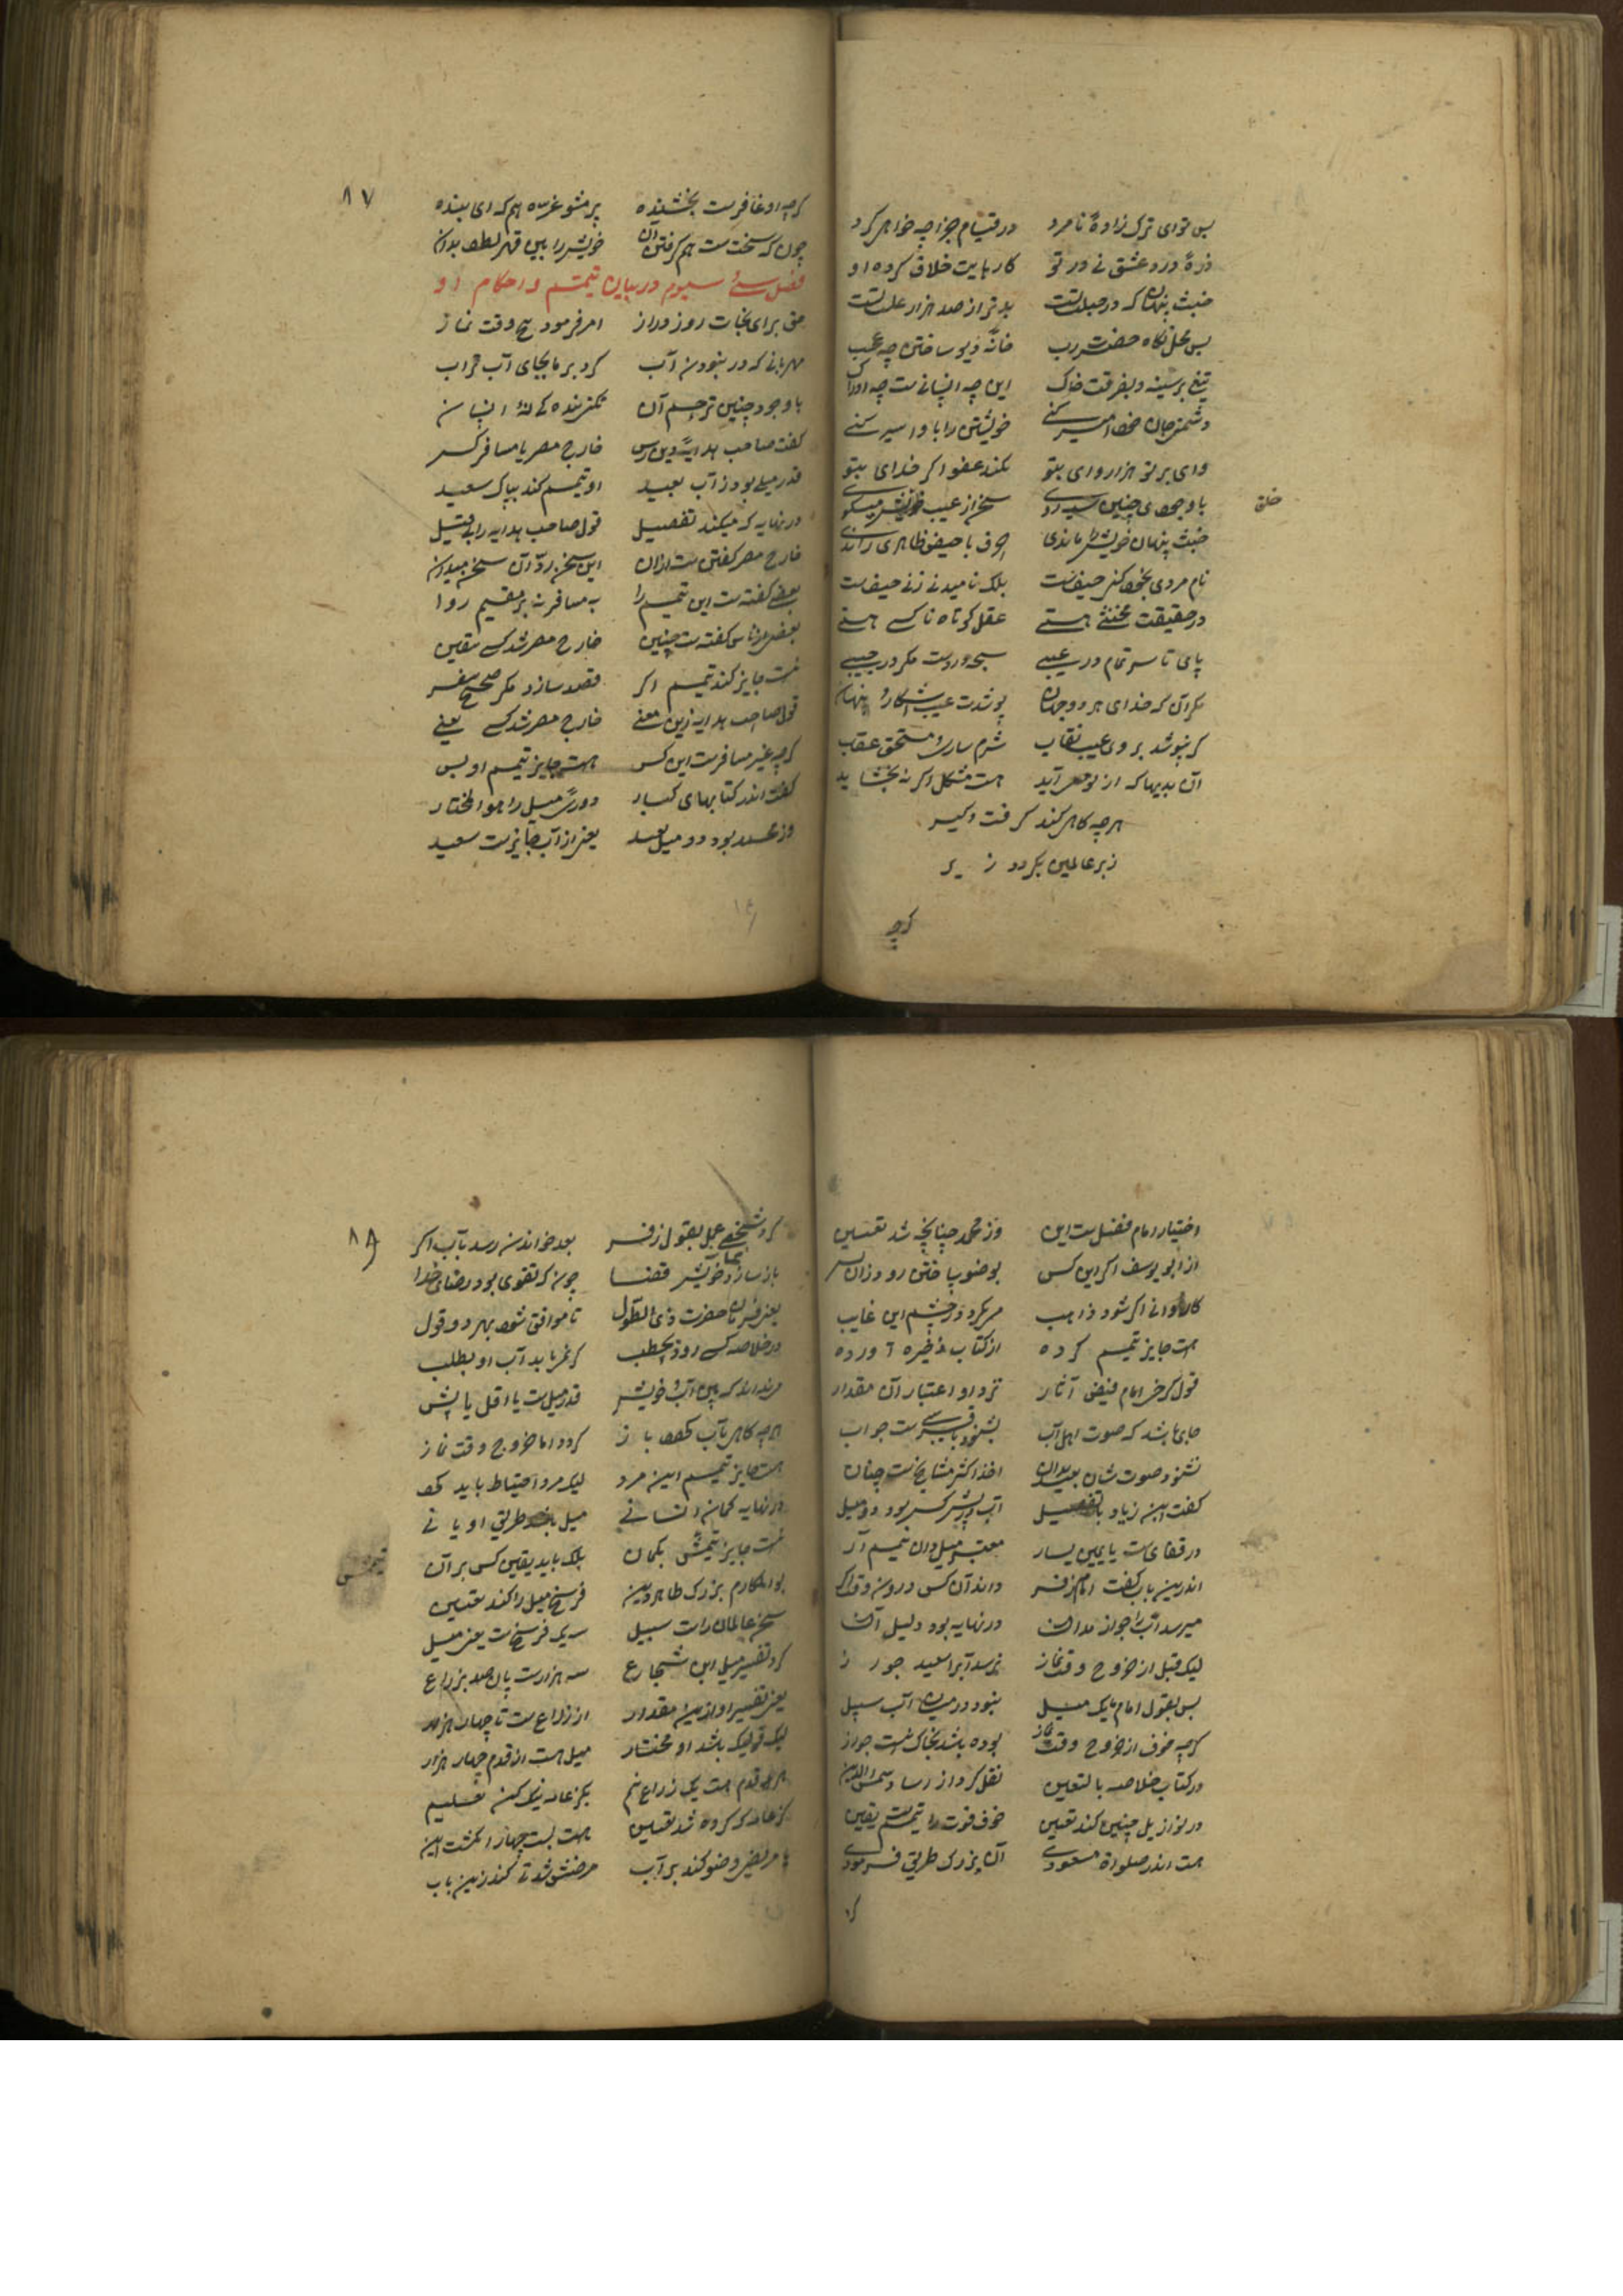 پس توای ترک زادهٔ نامرد در قیام جزا چه خواهی کرد
ذرهٔ درد عشق نی در تو کارهایت خلاف کرده او
خبث پنهان که در جبلت تست بدتر از صد هزار علت تست
پس محل نگاه حضرت رب خانهٔ دیو ساختن چه عجب
تیغ بر سینه و بفرقت خاک این چه انسانی ست چه ادراک
دشمن جان خود امیر کنی خویشتن را باو اسیر کنی
وای بر تو هزار وای بتو نکند عفو اگر خدای بتو
خلق
با وجودی چنین سیه روی سخن از عیب میگوی
خبث پنهان خویش را ماندی حرف با حیض ظاهری راندی
نام مردی بخود کنی حیف ست بلکه نامیدنی زنی حیف ست
در حقیقت مخنثی هستی عقل کوتاه ناکسی هستی
پای تا سر تمام در عیبی
مگر آن که خدای هر دو جهان پوشدت عیب آشکار و پنهان
گر نپوشد بروی عیب نقاب شرمساری و مستحق عقاب
آن بدیها که از تو می آید هست مشکل اگر نه بخشاید
هر چه کاهل کند گرفت و گیر
زبر عالمین بگردد زیر
گرچه
۸۷
گرچه او غافرست بخشنده پر مشو غره هم که ای بنده
چون که سخت ست هم گرفتن آن خویش را بین قهر و لطف بدان
فصل سی سیوم در بیان تیمم و احکام او
حق برای نجات روز دراز امر فرمود پنج وقت نماز
مهربانی که در نبودن آب کرد بر ما بجای آب تراب
با وجود چنین ترحم آن نکند بنده کاله انسان
گفت صاحب هدایهٔ دین رس خارج مصر یا مسافر کس
قدر میلی بود ز آب بعید او تیمم کند بپاک سعید
در نهایه که میکند تفصیل قول صاحب هدایه را بی قیل
خارج مصر گفتن ست از آن این سخن رد آن سخن میدان
بعضی گفته ست این تیمم را به مسافر نه بر مقیم روا
بعضی از ناس گفته ست چنین خارج مصر شد کسی بیقین
نیست جایز کند تیمم اگر قصد سازد مگر صحیح سفر
قول صاحب هدایه زین معنی خارج مصر شد کسی یعنی
گرچه غیر مسافرست این کس هست جایز تیمم او بس
گفت اندر کتابهای کبار دوری میل را هو المختار
وز محمد بود دو میل بعید یعنی از آب جایزست سعید
اختیار امام فضل ست این وز محمد چنانچه شد تعیین
از ابو یوسف اگر این کس بوضو ساختن رود زان پس
کاروانی اگر شود ذاهب میگردد ز چشم این غایب
هست جایز تیمم کرده از کتاب ذخیره آورده
قول کرخی امام فیض آثار نزد او اعتبار آن مقدار
جای باشد که صوت اهل آب بشنود با قریبی ست جواب
نشنود صوت شان بعید بدان اخذ اکثر مشایخ ست چنان
گفت ابن زیاد با تفصیل آب در پیش کس بود دو میل
در قفای ست یا یمین یسار معتبر میل دان تیمم آر
اندرین باب گفت امام زفر داند آن کس درون وقت اگر
میرسد آب را جواز مدان در نهایه بود دلیل آن
لیک قبل از خروج وقت نماز نرسد آب را سعید جواز
پس بقول امام تا یک میل نبود در میان آب سبیل
گرچه خوف از خروج وقت نماز بوده باشد بخاک نیست جواز
در کتاب خلاصه بالتعیین نقل کرد از شمس الدین
در نوازل چنین کند تعیین خوف فوت را تیمم ست یقین
هست اندر صلوة مسعودی آن بزرگ طریق فرمودی
کرد
۸۸
کرد شخصی عمل بقول زفر بعد خواندن رسد بآب اگر
باز سازد نماز خویش قضا چون که تقوی بود رضای خدا
یعنی فرمان حضرت ذی الطول تا موافق شود بهر دو قول
در خلاصه کسی رود بحطب گر نمی یابد آب او بطلب
میداند که بین آب و خویش قدر میل ست یا اقل یا بیش
هرچه کاهل بآب خود باز گردد اما خروج وقت نماز
هست جایز تیمم این مرد لیک مرد احتیاط باید کرد
در نهایه گمان انسانی میل باشد طریق او یا نی
نیست جایز تیممش بگمان بلکه باید یقین کس بر آن
تیممش
بو المکارم بزرگ طاهر دین فرسخ میل را کند تعیین
سخن عالمان راست سبیل سه یک فرسخ ست یعنی میل
کرد تفسیر میل ابن شجاع سه هزارست پانصد بزراع
یعنی تفسیر او ازین مقدار از زراع ست تا چهار هزار
لیک قولیک باشد او مختار میل هست از قدم چهار هزار
هر قدم هست یک زراع نیم بگز عامه نیک کن تسلیم
گز عامه که کرده شد تعیین هست بیست چهار انگشت این
یا مریضی وضو کند بر آب مرضش شد تر کند زین باب